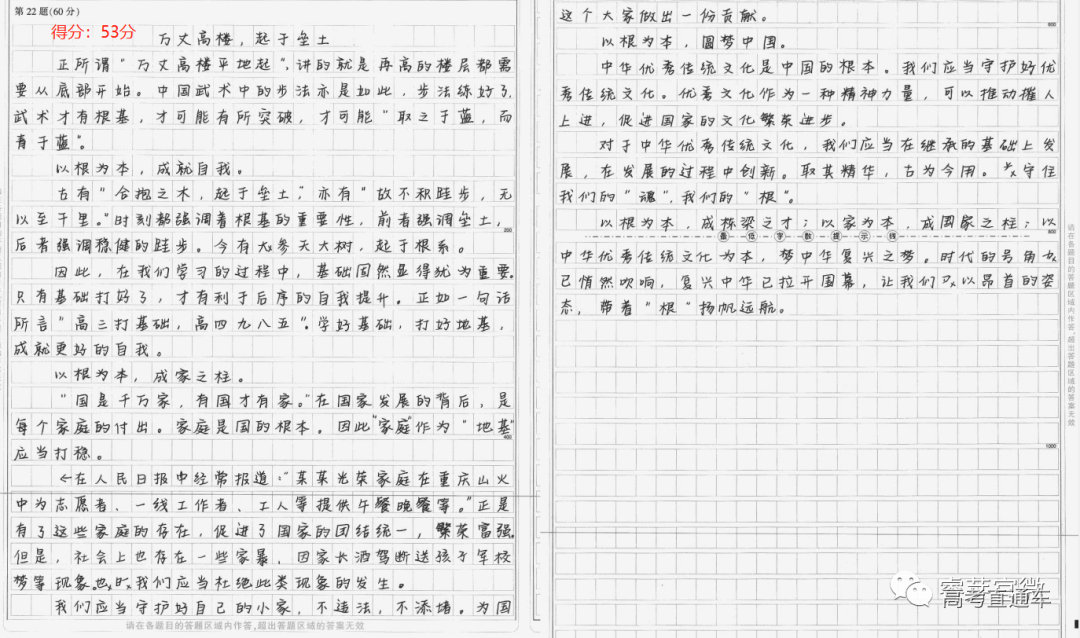 第22题(60分)
得分：53分
万丈高楼，起于垒土
正所谓“万丈高楼平地起”，讲的就是再高的楼层都需
要从底部开始。中国武术中的步法亦是如此，步法练好了，
武术才有根基，才可能有所突破，才可能“取之于蓝，而
青于蓝”。
以根为本，成就自我。
古有“合抱之木，起于垒土”，亦有“故不积跬步，无
以至千里。”时刻都强调着根基的重要性，前者强调垒土，
200
后者强调稳健的跬步。今有参天大树，起于根系。
因此，在我们学习的过程中，基础固然显得尤为重要。
只有基础打好了，才有利于后序的自我提升。正如一句话
所言“高三打基础，高四九八五”。学好基础，打好地基，
成就更好的自我。
以根为本，成家之柱。
“国是千万家，有国才有家。”在国家发展的背后，是
每个家庭的付出。家庭是国的根本。因此“家庭”作为“地基”
400
应当打稳。
在人民日报中经常报道：“某某光荣家庭在重庆山火
中为志愿者、一线工作者、工人等提供午餐晚餐等。”正是
有了这些家庭的存在，促进了国家的团结统一，繁荣富强。
但是，社会上也存在一些家暴、因家长酒驾断送孩子军校
梦等现象。我们应当杜绝此类现象的发生。
我们应当守护好自己的小家，不违法，不添堵。为国
请在各题目的答题区域内作答，超出答题区域的答案无效
这个大家做出一份贡献。
600
以根为本，圆梦中国。
中华优秀传统文化是中国的根本。我们应当守护好优
秀传统文化。优秀文化作为一种精神力量，可以推动摧人
上进，促进国家的文化繁荣进步。
对于中华优秀传统文化，我们应当在继承的基础上发
展，在发展的过程中创新。取其精华，古为今用。守住
我们的“魂”，我们的“根”。
以根为本，成栋梁之才；以家为本，成国家之柱；以
最低字数提示线
800
中华优秀传统文化为本，梦中华复兴之梦。时代的号角
已悄然吹响，复兴中华已拉开围幕，让我们以昂首的姿
态，带着“根”扬帆远航。
1000
请在各题目的答题区域内作答，超出答题区域的答案无效
高考直通车